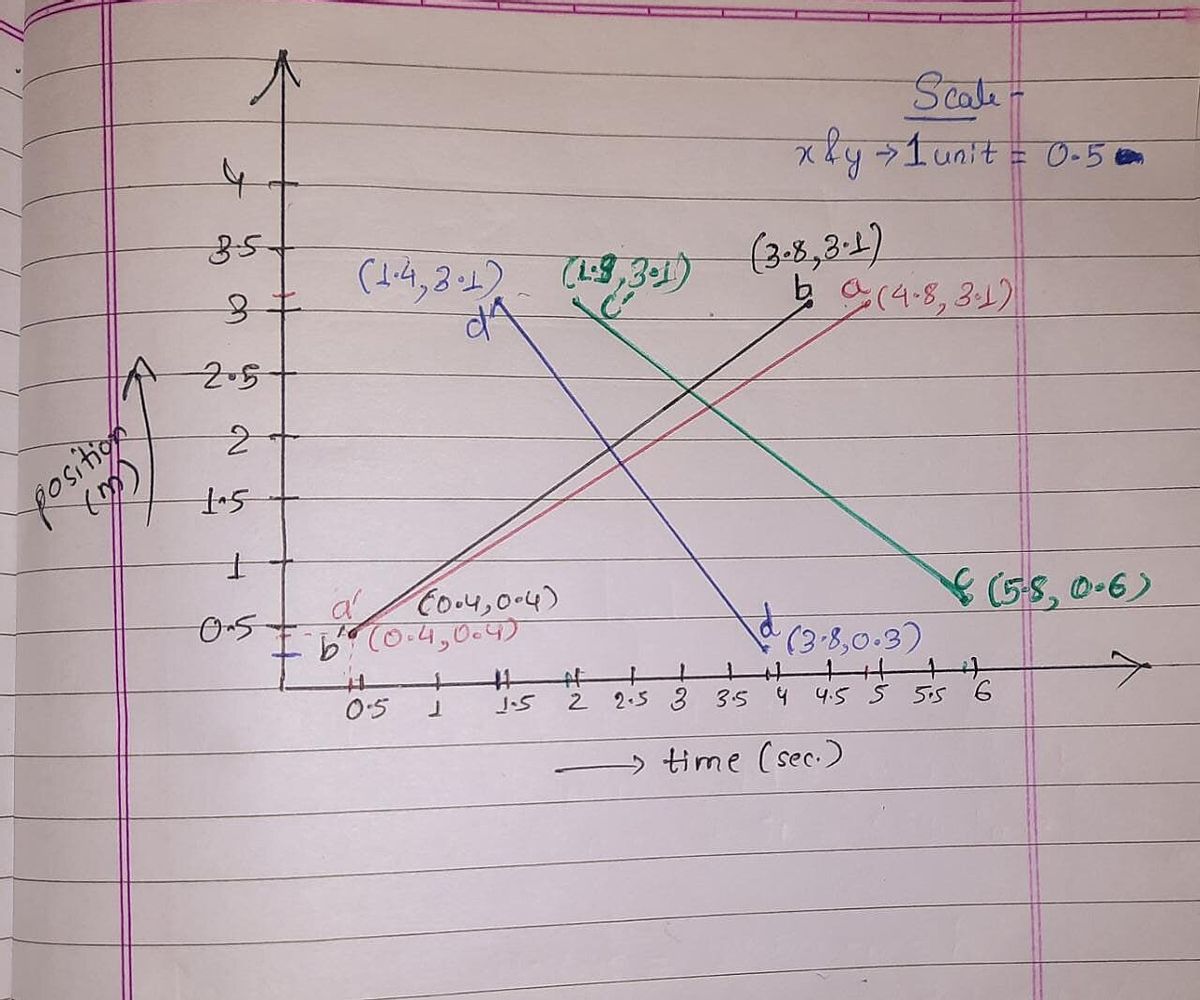 Scale -
x & y → 1 unit = 0.5
4
3.5
(1.4, 3.1)
(1.8, 3.1)
(3.8, 3.1)
3
d'
c'
b
a (4.8, 3.1)
2.5
position
(m)
2
1.5
1
a'
(0.4, 0.4)
c (5.8, 0.6)
0.5
b'
(0.4, 0.4)
d (3.8, 0.3)
0.5 1 1.5 2 2.5 3 3.5 4 4.5 5 5.5 6
→ time (sec.)